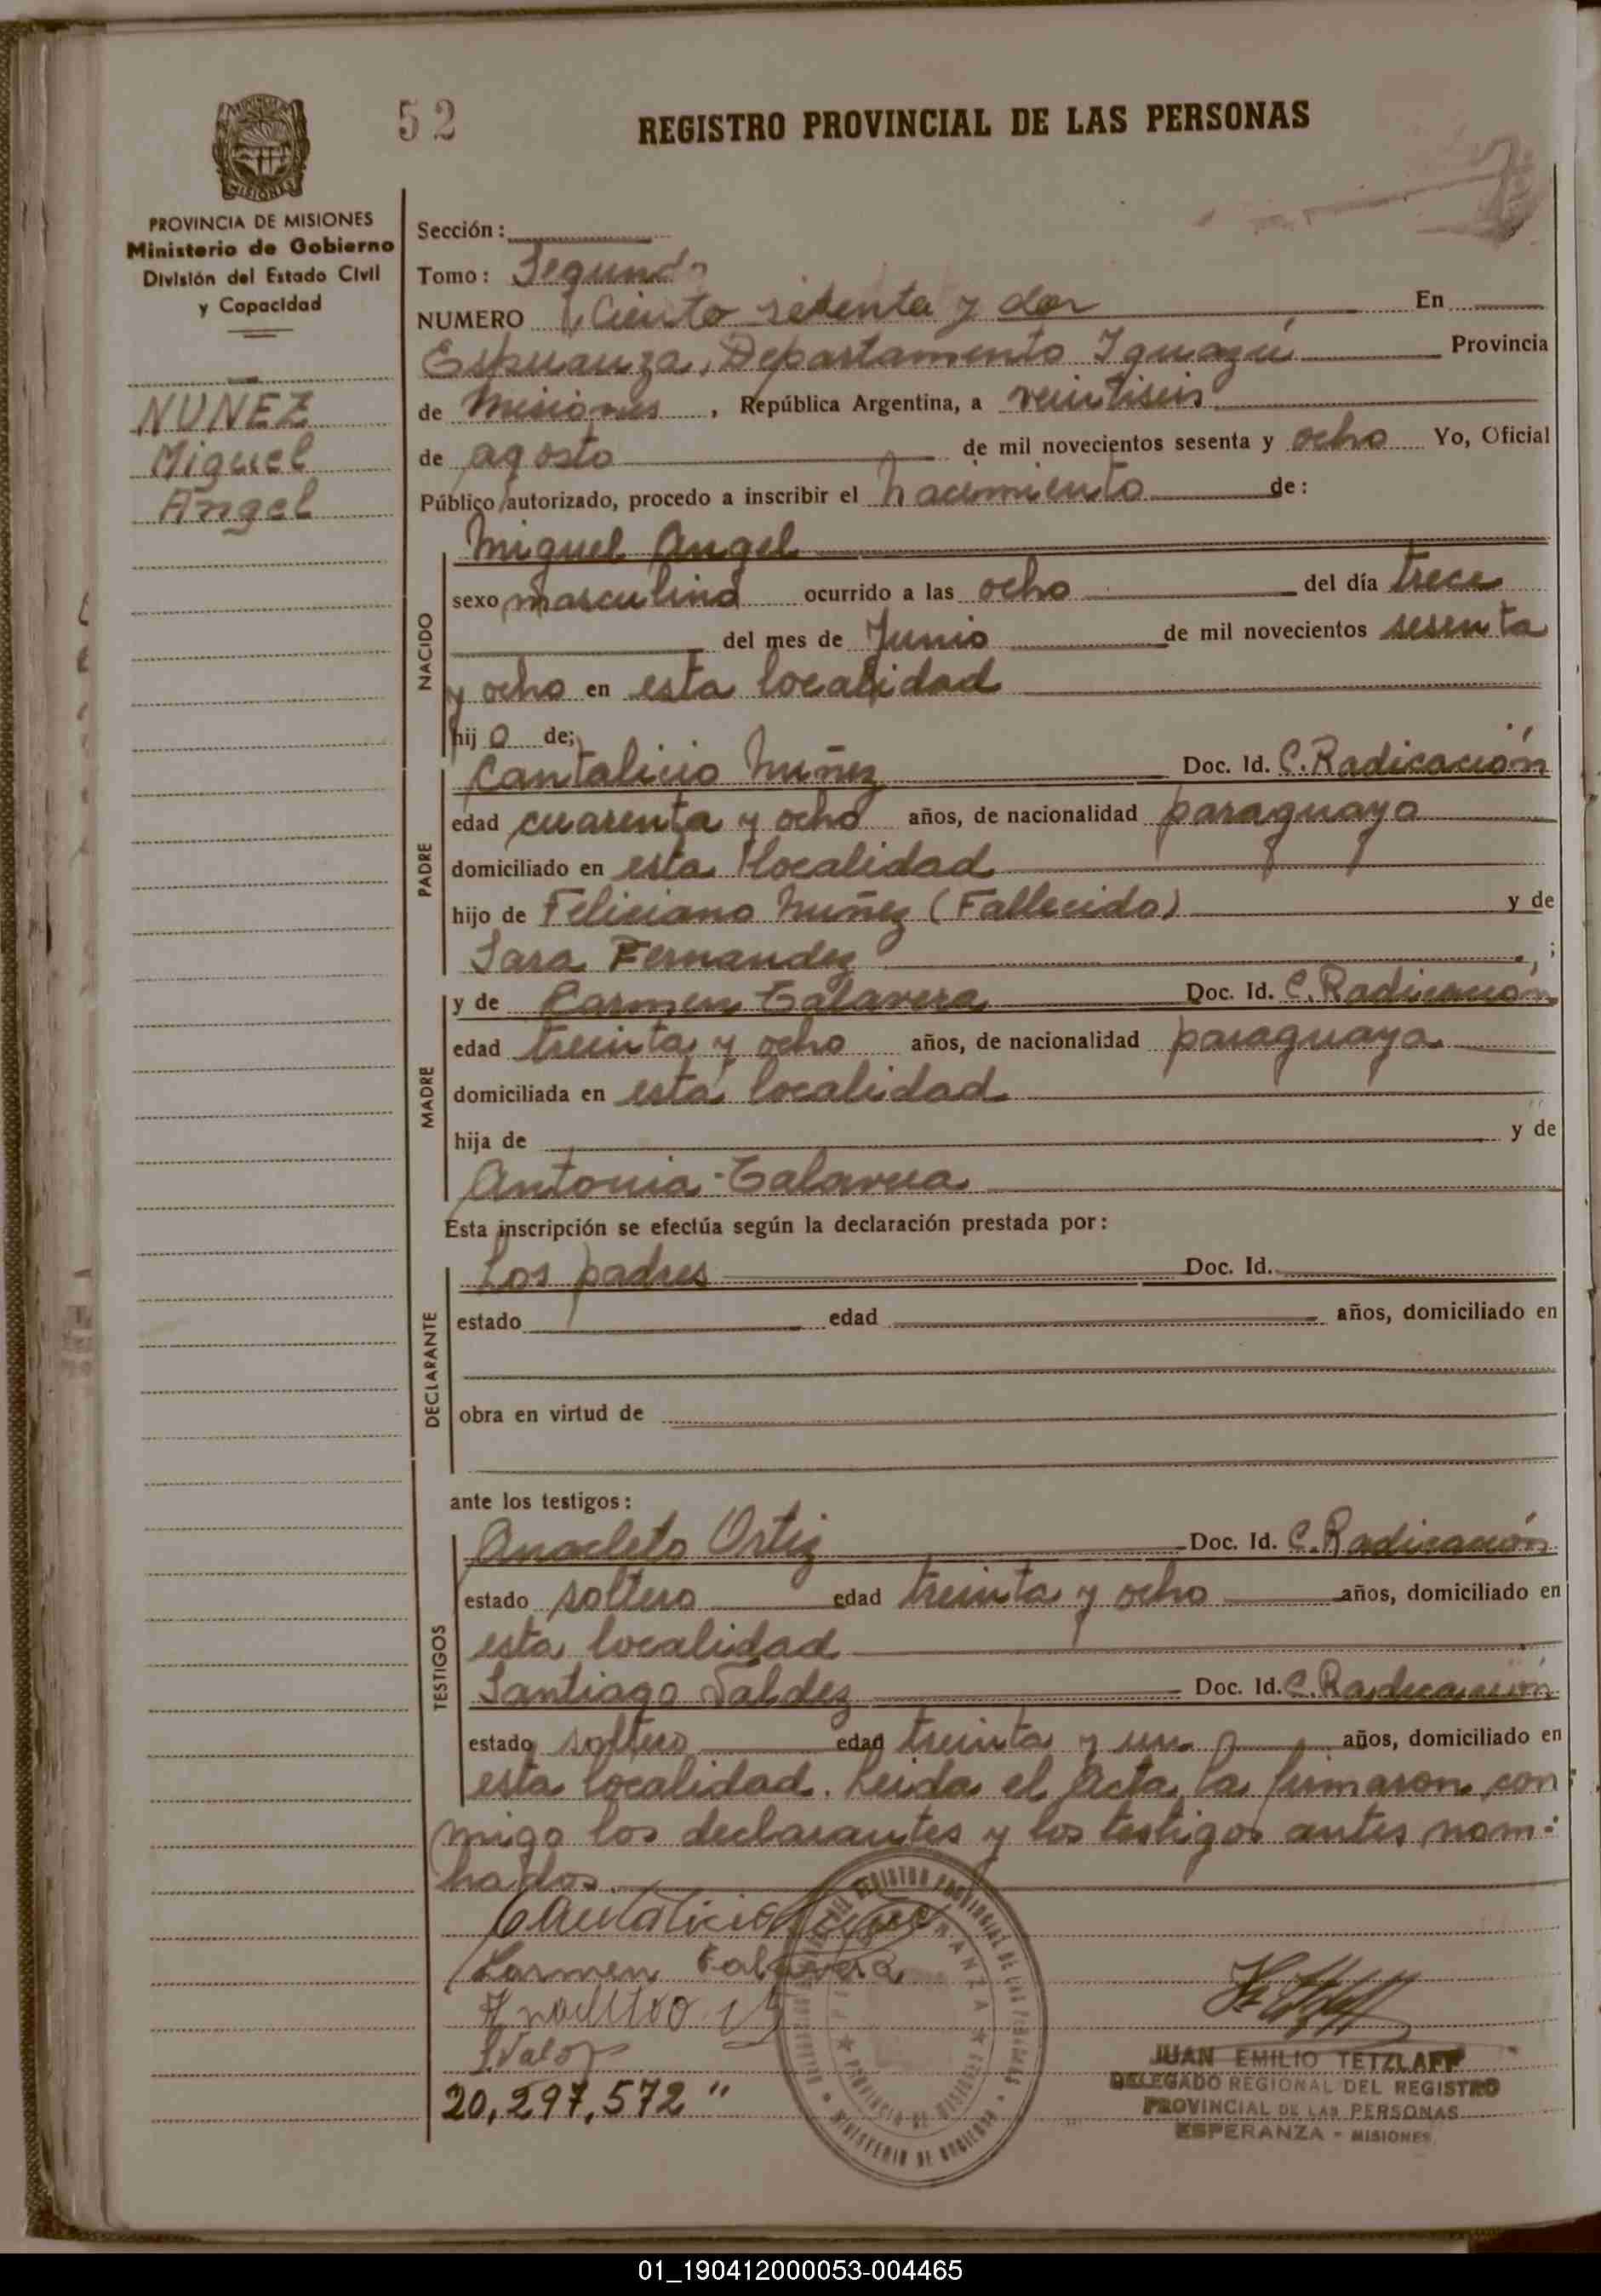 52
REGISTRO PROVINCIAL DE LAS PERSONAS
MISIONES
PROVINCIA DE MISIONES
Ministerio de Gobierno
División del Estado Civil
y Capacidad
NUÑEZ
Miguel
Angel
Sección:
Tomo: Segundo
NUMERO Ciento setenta y dos En
Esperanza, Departamento Iguazú Provincia
de Misiones, República Argentina, a veintiseis
de agosto de mil novecientos sesenta y ocho Yo, Oficial
Público autorizado, procedo a inscribir el nacimiento de:
NACIDO
Miguel Angel
sexo masculino ocurrido a las ocho del día trece
del mes de Junio de mil novecientos sesenta
y ocho en esta localidad
hijo de;
PADRE
Cantalicio Nuñez Doc. Id. C. Radicación
edad cuarenta y ocho años, de nacionalidad paraguayo
domiciliado en esta localidad
hijo de Feliciano Nuñez (Fallecido) y de
Sara Fernandez ;
MADRE
y de Carmen Talavera Doc. Id. C. Radicación
edad treinta y ocho años, de nacionalidad paraguaya
domiciliada en esta localidad
hija de y de
Antonia Talavera
Esta inscripción se efectúa según la declaración prestada por:
DECLARANTE
Los padres Doc. Id.
estado edad años, domiciliado en
obra en virtud de
ante los testigos:
TESTIGOS
Anacleto Ortiz Doc. Id. C. Radicación
estado soltero edad treinta y ocho años, domiciliado en
esta localidad
Santiago Valdez Doc. Id. C. Radicación
estado soltero edad treinta y un años, domiciliado en
esta localidad. Leida el Acta, la firmaron con
migo los declarantes y los testigos antes nom-
brados.
Cantalicio Nuñez
Carmen Talavera
20,297,572"
JUAN EMILIO TETZLAFF
DELEGADO REGIONAL DEL REGISTRO
PROVINCIAL DE LAS PERSONAS
ESPERANZA - MISIONES
REGISTRO PROVINCIAL DE LAS PERSONAS
PROVINCIA DE MISIONES
MINISTERIO DE GOBIERNO
01_190412000053-004465